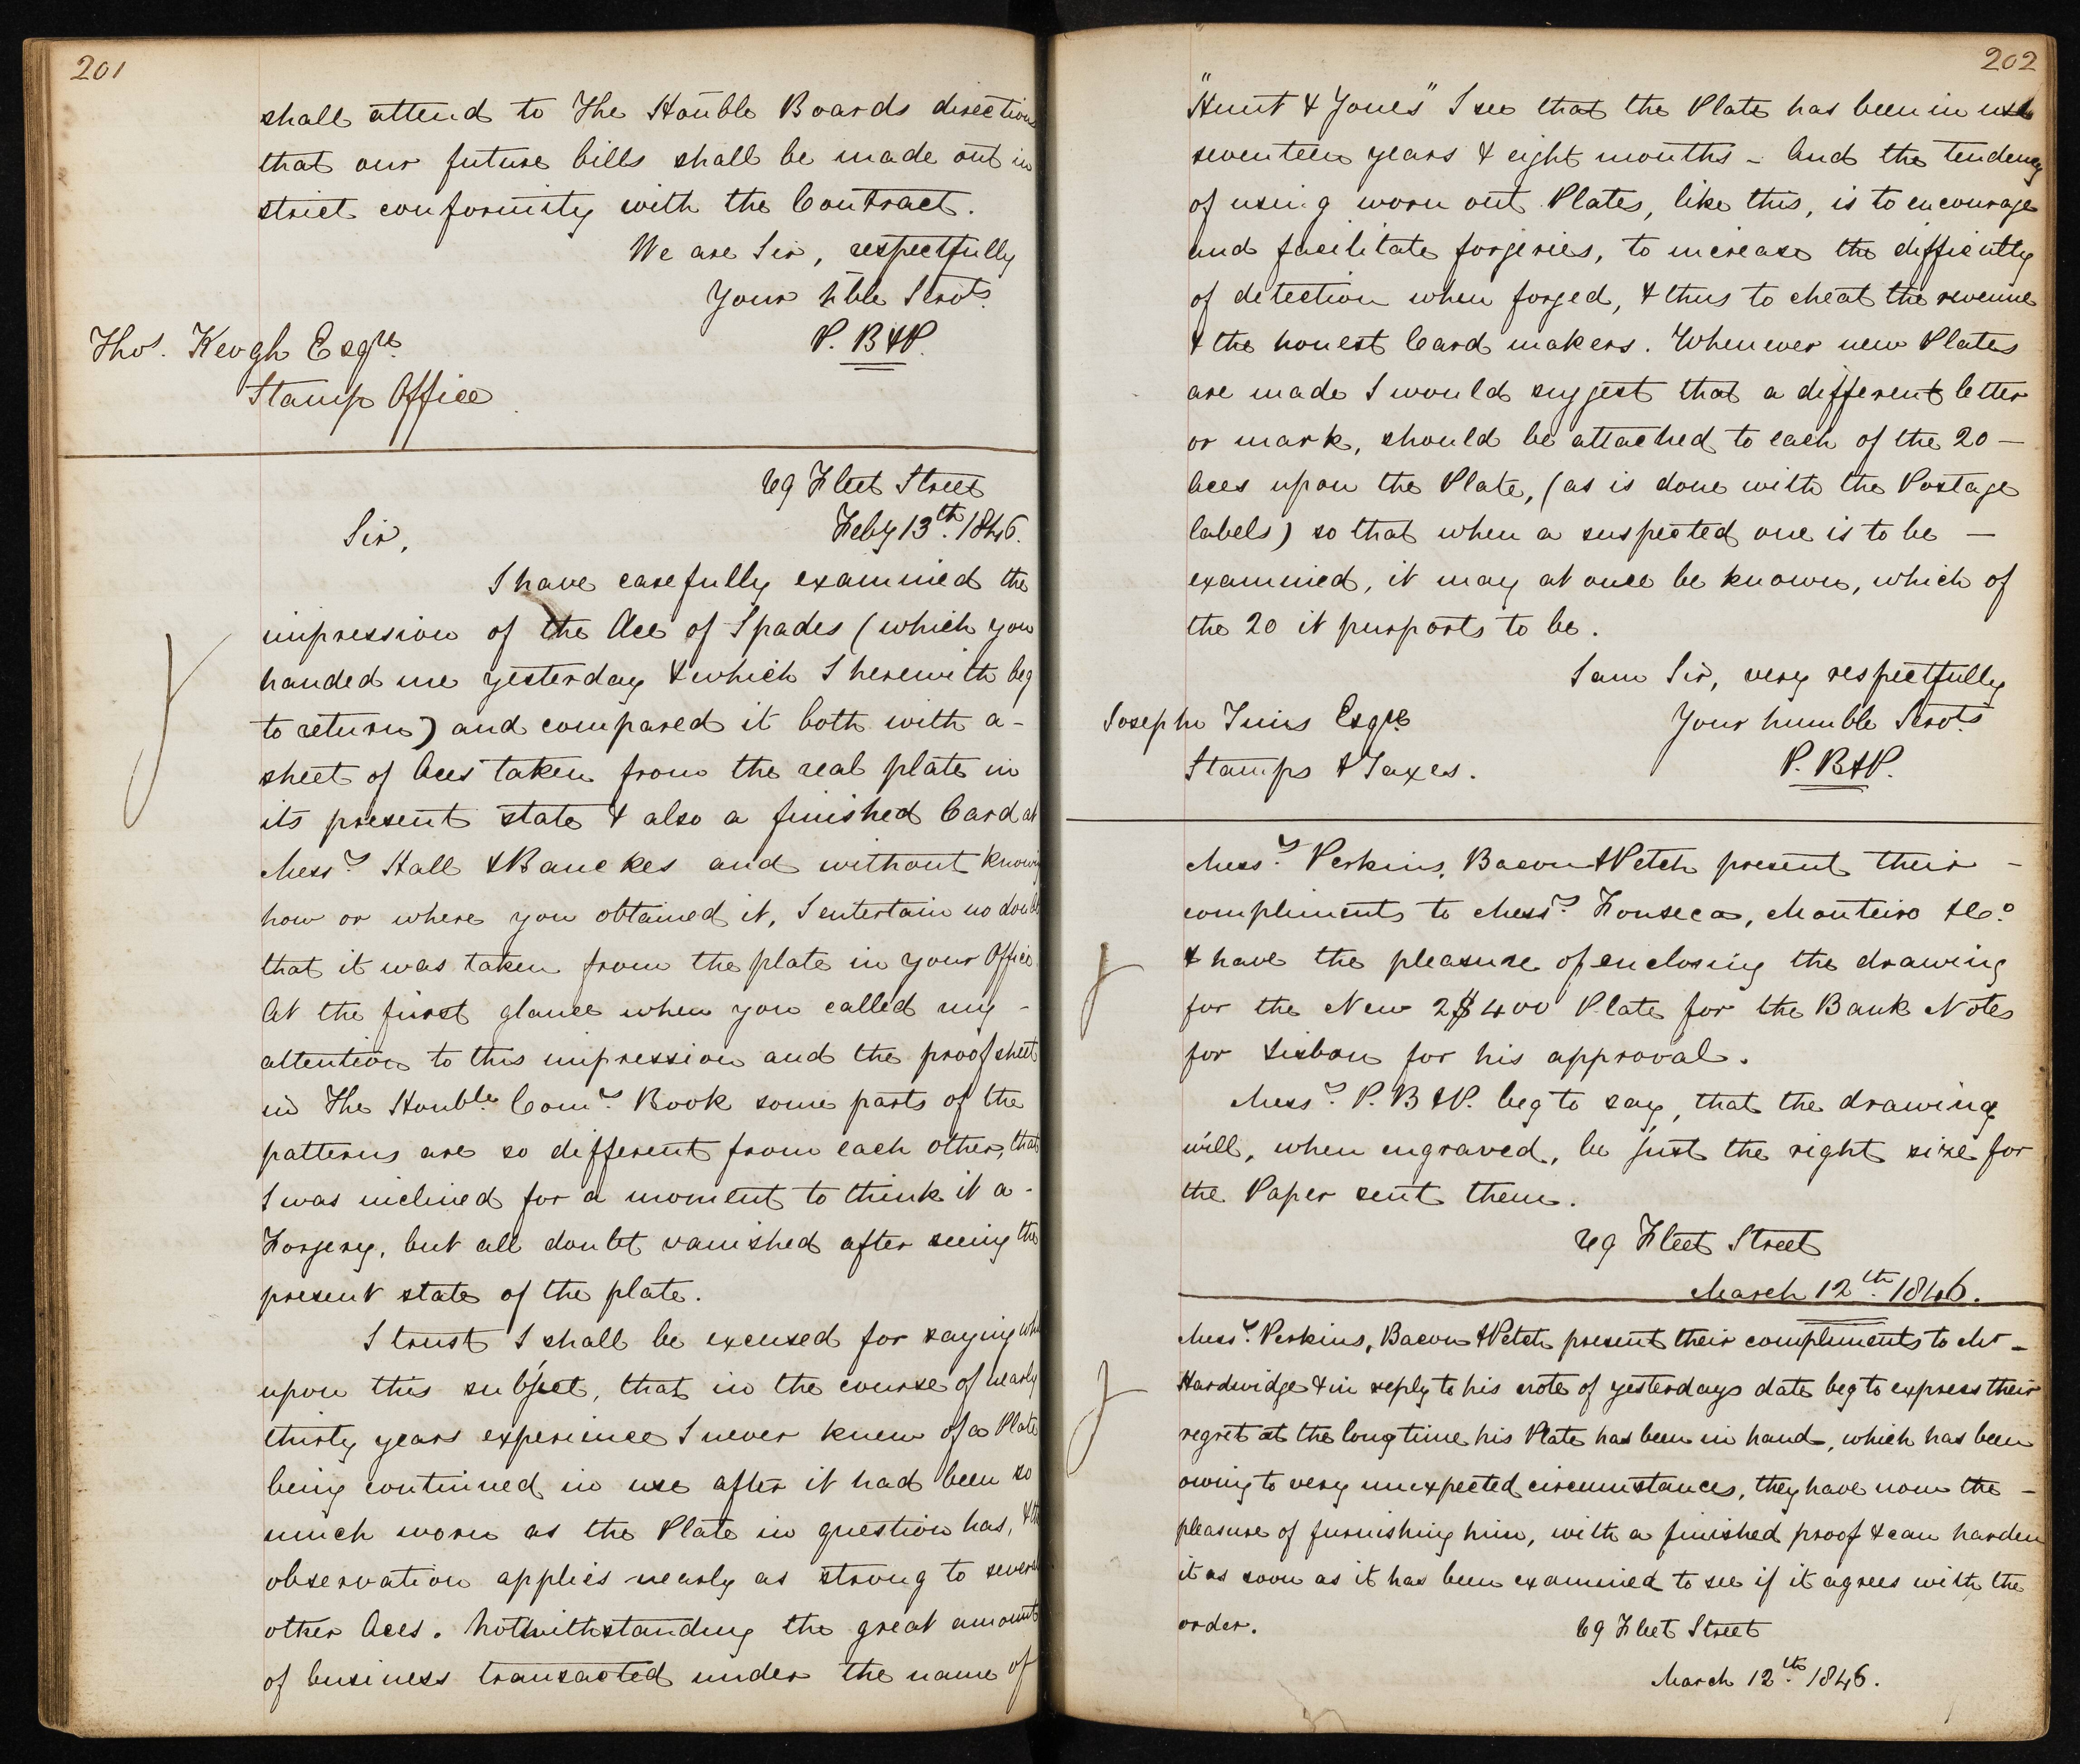 201
shall attend to The Honble Boards directions
that our future bills shall be made out in
strict conformity with the Contract.
We are Sir, respectfully
Your hble Servts.
P. B & P.
Thos. Keogh Esqre.
Stamp Office
69 Fleet Street
Feby 13th. 1846.
Sir,
I have carefully examined the
impression of the Ace of Spades (which you
handed me yesterday & which I herewith beg
to return) and compared it both with a -
sheet of Aces taken from the real plate in
its present state & also a finished Card at
Messrs Hall & Banckes and without knowing
how or where you obtained it, I entertain no doubt
that it was taken from the plate in your Office.
At the first glance when you called my -
attention to this impression and the proof sheet
in The Honble. Comrs. Book some parts of the
patterns are so different from each other, that
I was inclined for a moment to think it a -
Forgery, but all doubt vanished after seeing the
present state of the plate.
I trust I shall be excused for saying
upon this subject, that in the course of nearly
thirty years experience I never knew of a Plate
being continued in use after it had been so
much worn as the Plate in question has, & the
observation applies nearly as strong to several
other Aces. Notwithstanding the great amount
of business transacted under the name of
202
"Hunt & Jones" I see that the Plate has been in use
seventeen years & eight months - And the tendency
of using worn out Plates, like this, is to encourage
and facilitate forgeries, to increase the difficulty
of detection when forged, & thus to cheat the revenue
& the honest Card makers. Whenever new Plates
are made I would suggest that a different letter
or mark, should be attached to each of the 20 —
Aces upon the Plate, (as is done with the Postage
labels) so that when a suspected one is to be —
examined, it may at once be known, which of
the 20 it purports to be.
I am Sir, very respectfully
Joseph Esqre
Your humble Servts.
Stamps & Taxes.
P. B & P.
Messrs. Perkins, Bacon & Petch present their -
compliments to Messrs. Fonseca, Monteiro & Co.
& have the pleasure of enclosing the drawing
for the New 2$400 Plate for the Bank Notes
for Lisbon for his approval.
Messrs. P. B & P. beg to say, that the drawing
will, when engraved, be just the right size for
the Paper sent them.
69 Fleet Street
March 12th. 1846.
Messrs. Perkins, Bacon & Petch present their compliments to Mr -
Hardwidge & in reply to his note of yesterdays date beg to express their
regret at the long time his Plate has been in hand, which has been
owing to very unexpected circumstances, they have now the -
pleasure of furnishing him, with a finished proof & can harden
it as soon as it has been examined to see if it agrees with the
order.
69 Fleet Street
March 12th. 1846.